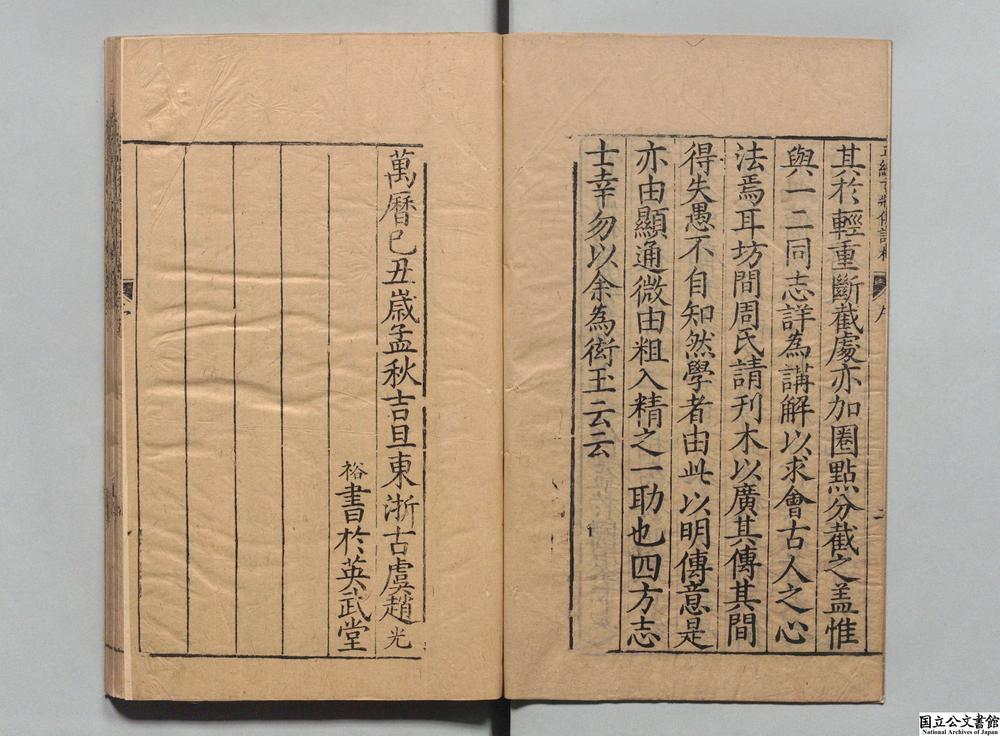 其於輕重斷截處亦加圈點分截之盖惟
與一二同志詳為講解以求會古人之心
法焉耳坊間周氏請刊木以廣其傳其間
得失愚不自知然學者由此以明傳意是
亦由顯通微由粗入精之一助也四方志
士幸勿以余為衒玉云云
萬曆己丑歲孟秋吉旦東浙古虞趙光
裕書於英武堂
国立公文書館
National Archives of Japan